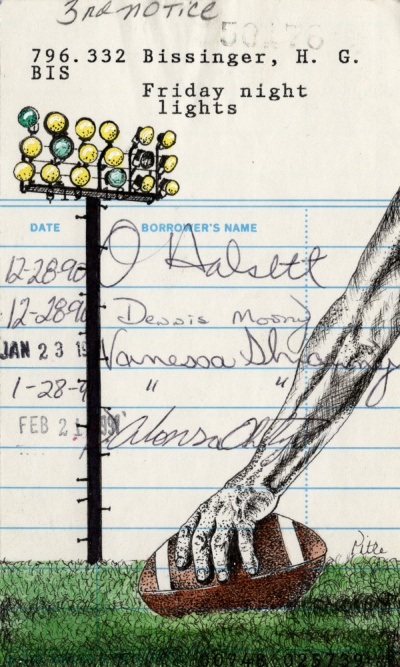 3rd notice
50176
796.332 Bissinger, H. G.
BIS
Friday night
lights
DATE BORROWER'S NAME
12-28-90 O Halsett
12-28-90 Dennis Moony
JAN 23 19 Vanessa
1-28-9 " "
FEB 21 1991 Alonso
Pitre